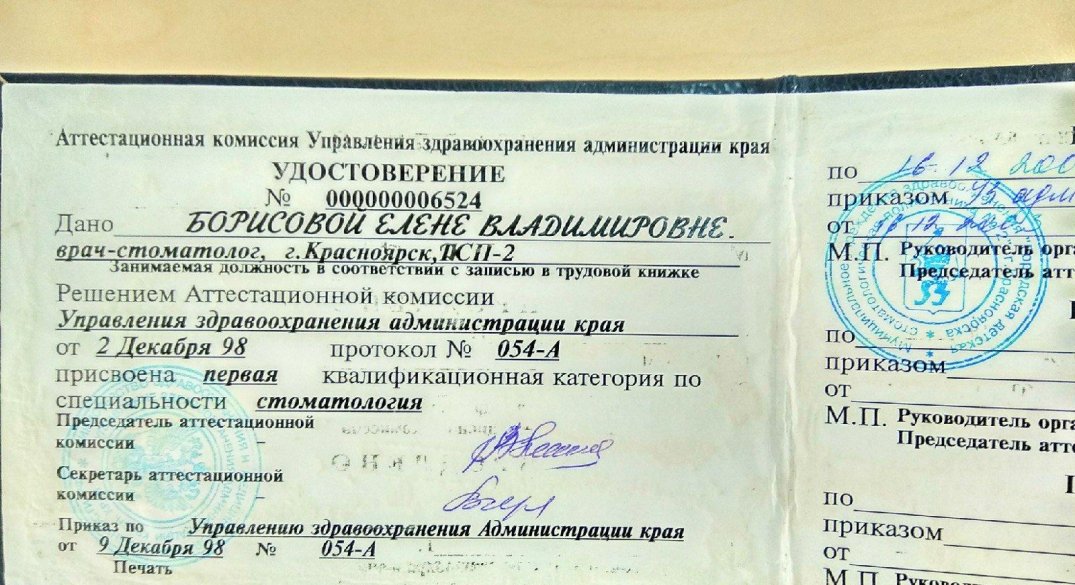 Аттестационная комиссия Управления здравоохранения администрации края
УДОСТОВЕРЕНИЕ
№ 000000006524
Дано БОРИСОВОЙ ЕЛЕНЕ ВЛАДИМИРОВНЕ.
врач-стоматолог, г.Красноярск,
Занимаемая должность в соответствии с записью в трудовой книжке
Решением Аттестационной комиссии
Управления здравоохранения администрации края
от 2 Декабря 98 протокол № 054-А
присвоена первая квалификационная категория по
специальности стоматология
Председатель аттестационной
комиссии
Секретарь аттестационной
комиссии
Приказ по Управлению здравоохранения Администрации края
от 9 Декабря 98 № 054-А
Печать
по 16.12
приказом
от
М.П. Руководитель
Председатель
по
приказом
от
М.П. Руководитель
Председатель
по
приказом
от
М.П.